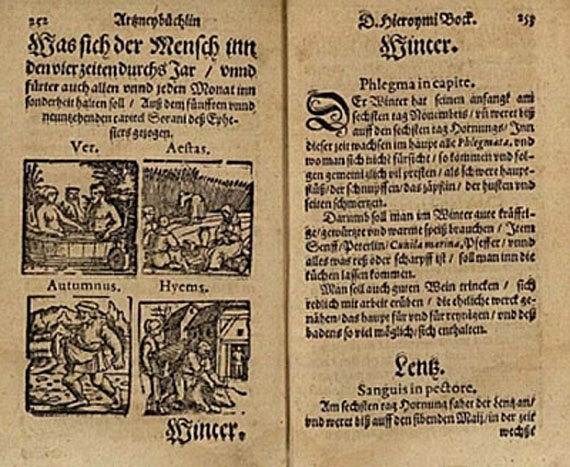 252 Artzneybüchlin
Was sich der Mensch inn
den vier zeiten durchs Jar / vnnd
fürter auch allen vnnd jeden Monat inn
sonderheit halten soll / Auß dem fünfften vnnd
neuntzehenden capitel Sorani deß Ephe-
siers gezogen.
Ver. Aestas.
Autumnus. Hyems.
Winter.
D. Hieronymi Bock. 253
Winter.
Phlegma in capite.
DEr Winter hat seinen anfangk am
sechsten tag Nouembris / vñ weret biß
auff den sechsten tag Hornungs / Inn
dieser zeit wachsen im haupt alle Phlegmata, vnd
wo man sich nicht fürsicht / so kommen vnd fol-
gen gemeinglich vil presten / als schwere haupt-
flüß / der schnupffen / das zäpflin / der husten vnd
seiten schmertzen.
Darumb soll man im Winter gute kräffti-
ge / gewürtze vnd warme speiß brauchen / Item
Senff / Peterlin / Cunila marina, Pfeffer / vnnd
alles was reß oder scharpff ist / soll man inn die
küchen lassen kommen.
Man soll auch guten Wein trincken / sich
redlich mit arbeit erüben / die ehrliche werck ge-
nähen / das haupt für vnd für reynigen / vnd deß
badens so viel möglich / sich enthalten.
Lentz.
Sanguis in pectore.
Am sechsten tag Hornung fahet der Lentz an /
vnd weret biß auff den sibenden Maij / in der zeit
wechßt